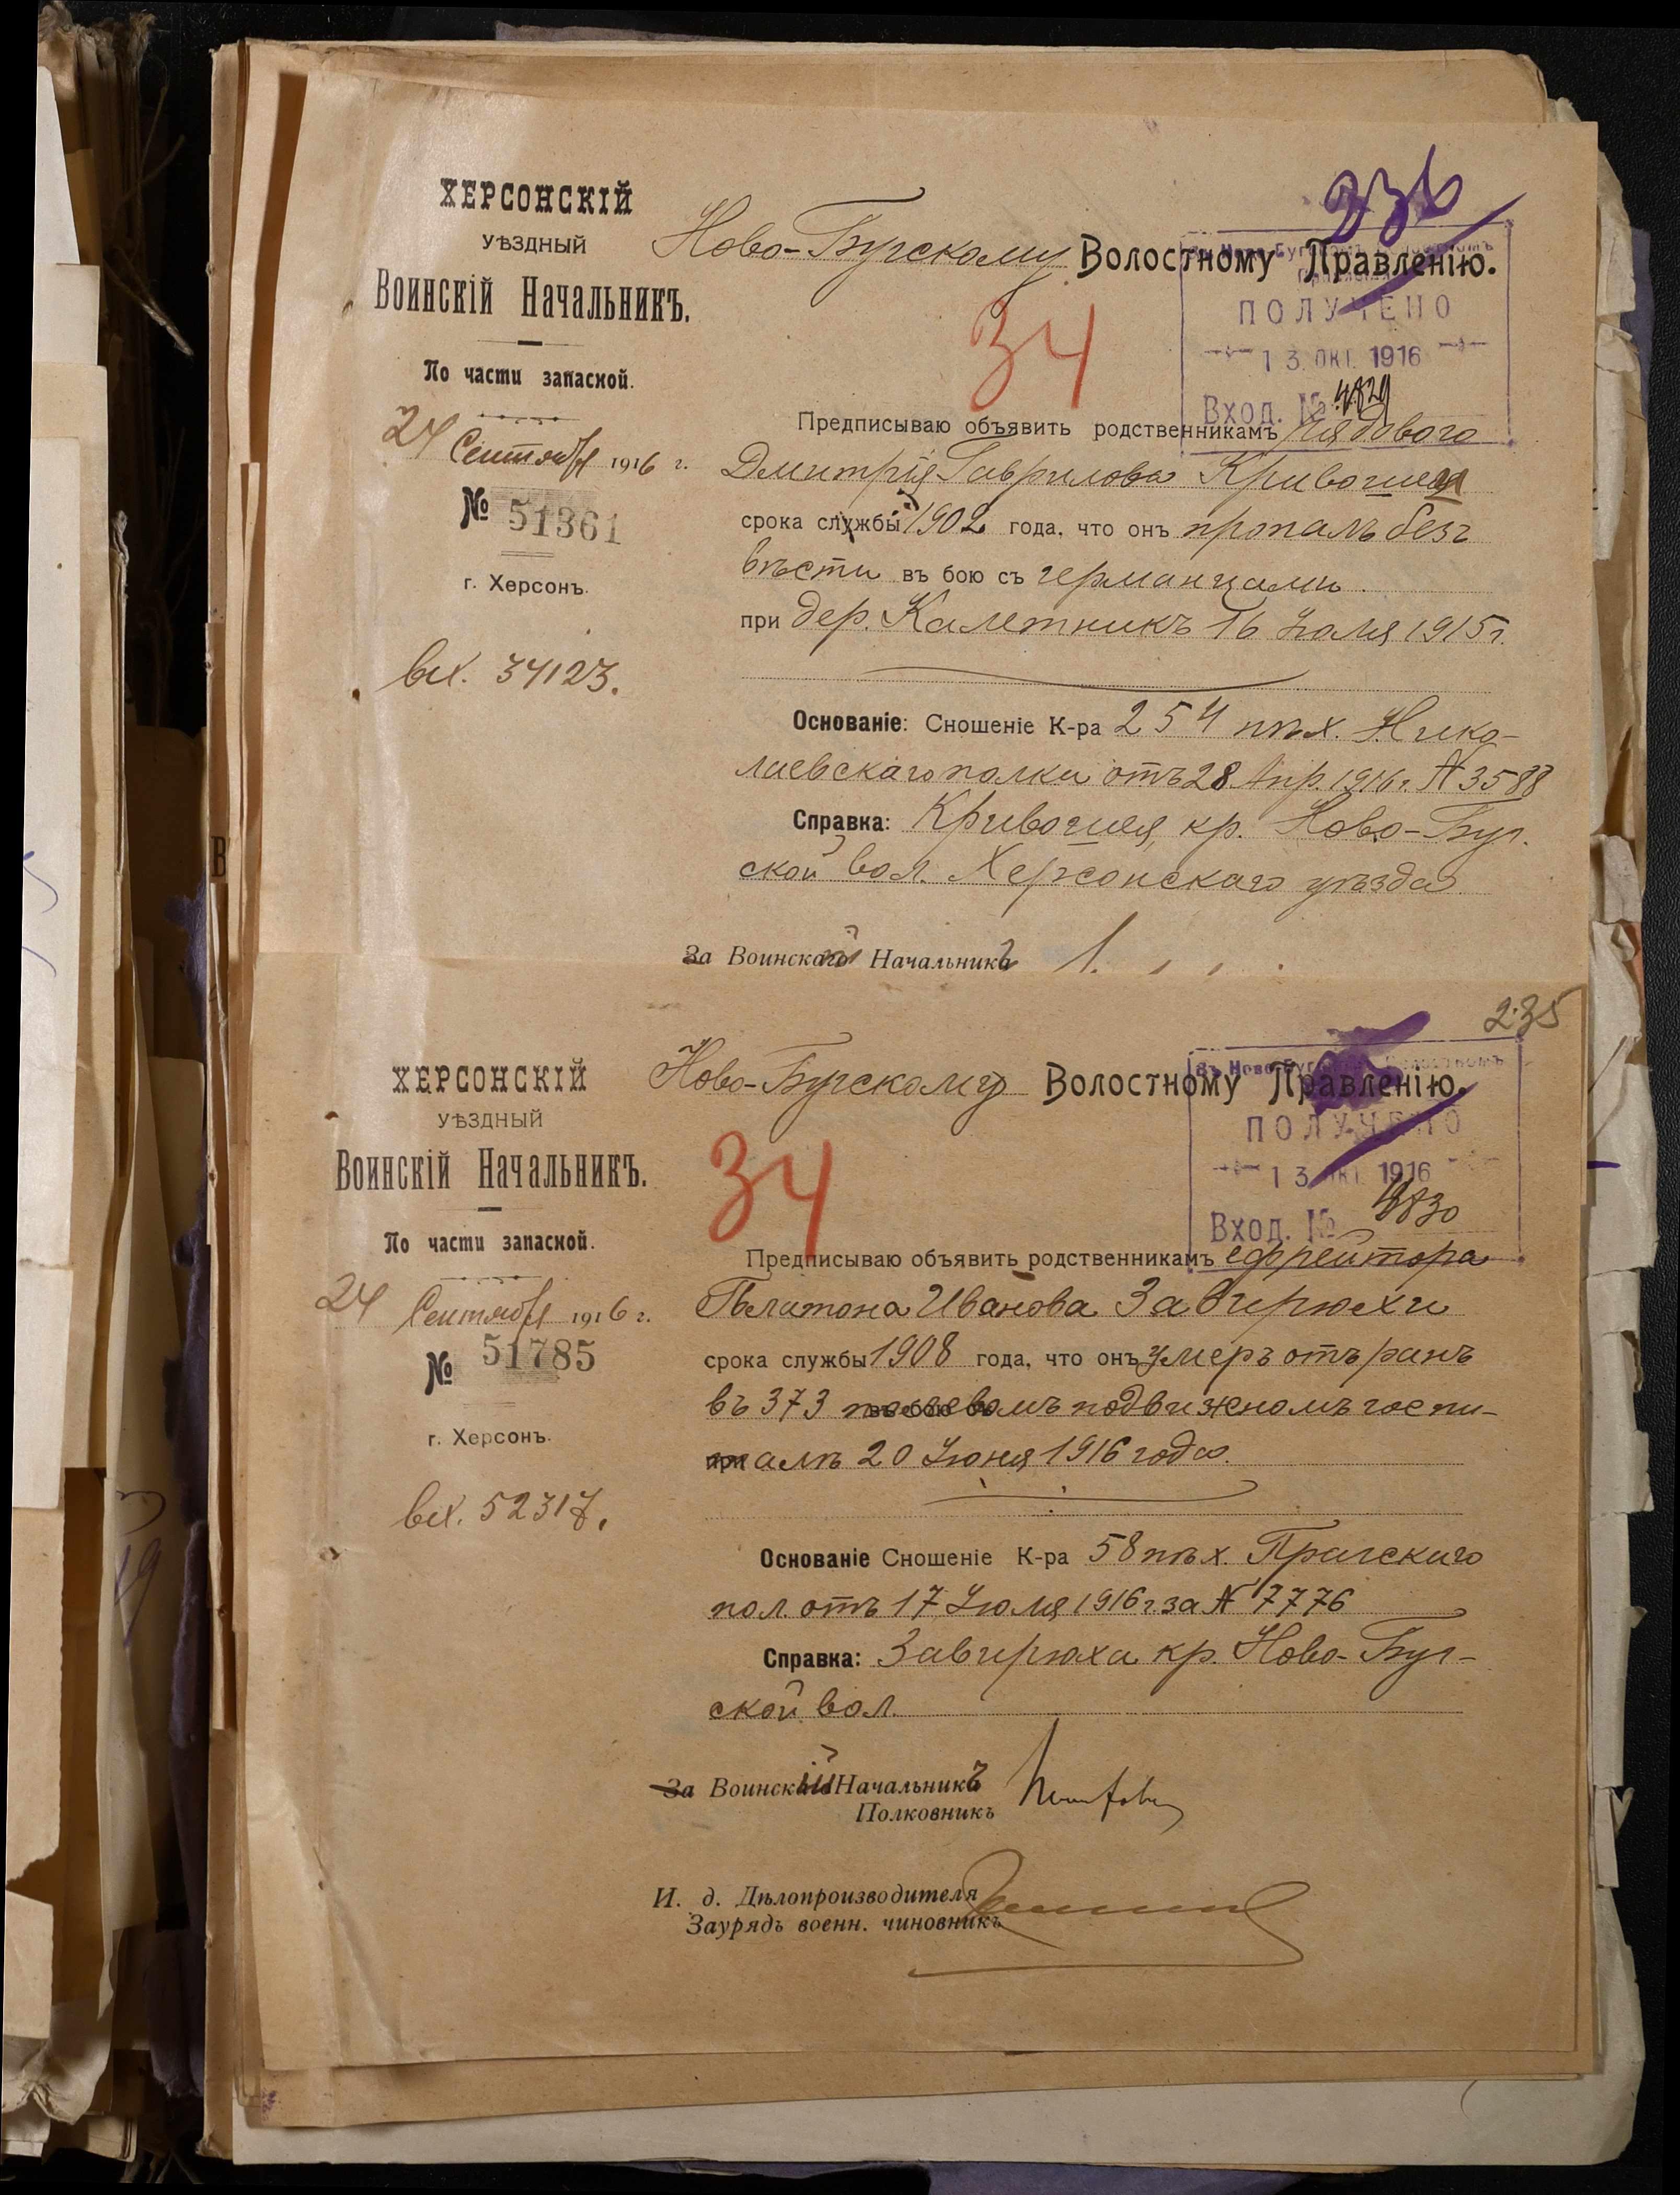 236
ХЕРСОНСКІЙ
УѢЗДНЫЙ
Воинскій Начальникъ.
По части запасной.
24 Сентября 1916 г.
№ 51361
г. Херсонъ.
вх. 34123.
Ново-Бугскому Волостному Правленію.
ПОЛУЧЕНО
13 ОКТ. 1916
Вход. № 4829
34
Предписываю объявить родственникамъ рядового
Дмитрія Гаврилова Кривошея
срока службы 1902 года, что онъ пропалъ безъ
вѣсти въ бою съ германцами
при дер. Калетникъ 16 Іюля 1915 г.
Основаніе: Сношеніе К-ра 254 пѣх. Нико-
лаевскаго полка отъ 28 Апр. 1916 г. № 3588
Справка: Кривошея, кр. Ново-Буг.
ской вол. Херсонскаго уѣзда
За Воинскій Начальникъ
235
ХЕРСОНСКІЙ
УѢЗДНЫЙ
Воинскій Начальникъ.
По части запасной.
24 Сентября 1916 г.
№ 51785
г. Херсонъ.
вх. 52317.
Ново-Бугскому Волостному Правленію.
ПОЛУЧЕНО
13 ОКТ. 1916
Вход. № 4830
34
Предписываю объявить родственникамъ ефрейтора
Платона Иванова Завирюхи
срока службы 1908 года, что онъ умеръ отъ ранъ
въ 373 полевомъ подвижномъ госпи-
талѣ 20 Іюня 1916 года.
Основаніе Сношеніе К-ра 58 пѣх. Прагскаго
пол. отъ 17 Іюля 1916 г. за № 7776
Справка: Завирюха кр. Ново-Буг-
ской вол.
За Воинскій Начальникъ
Полковникъ
И. д. Дѣлопроизводителя
Заурядъ военн. чиновникъ